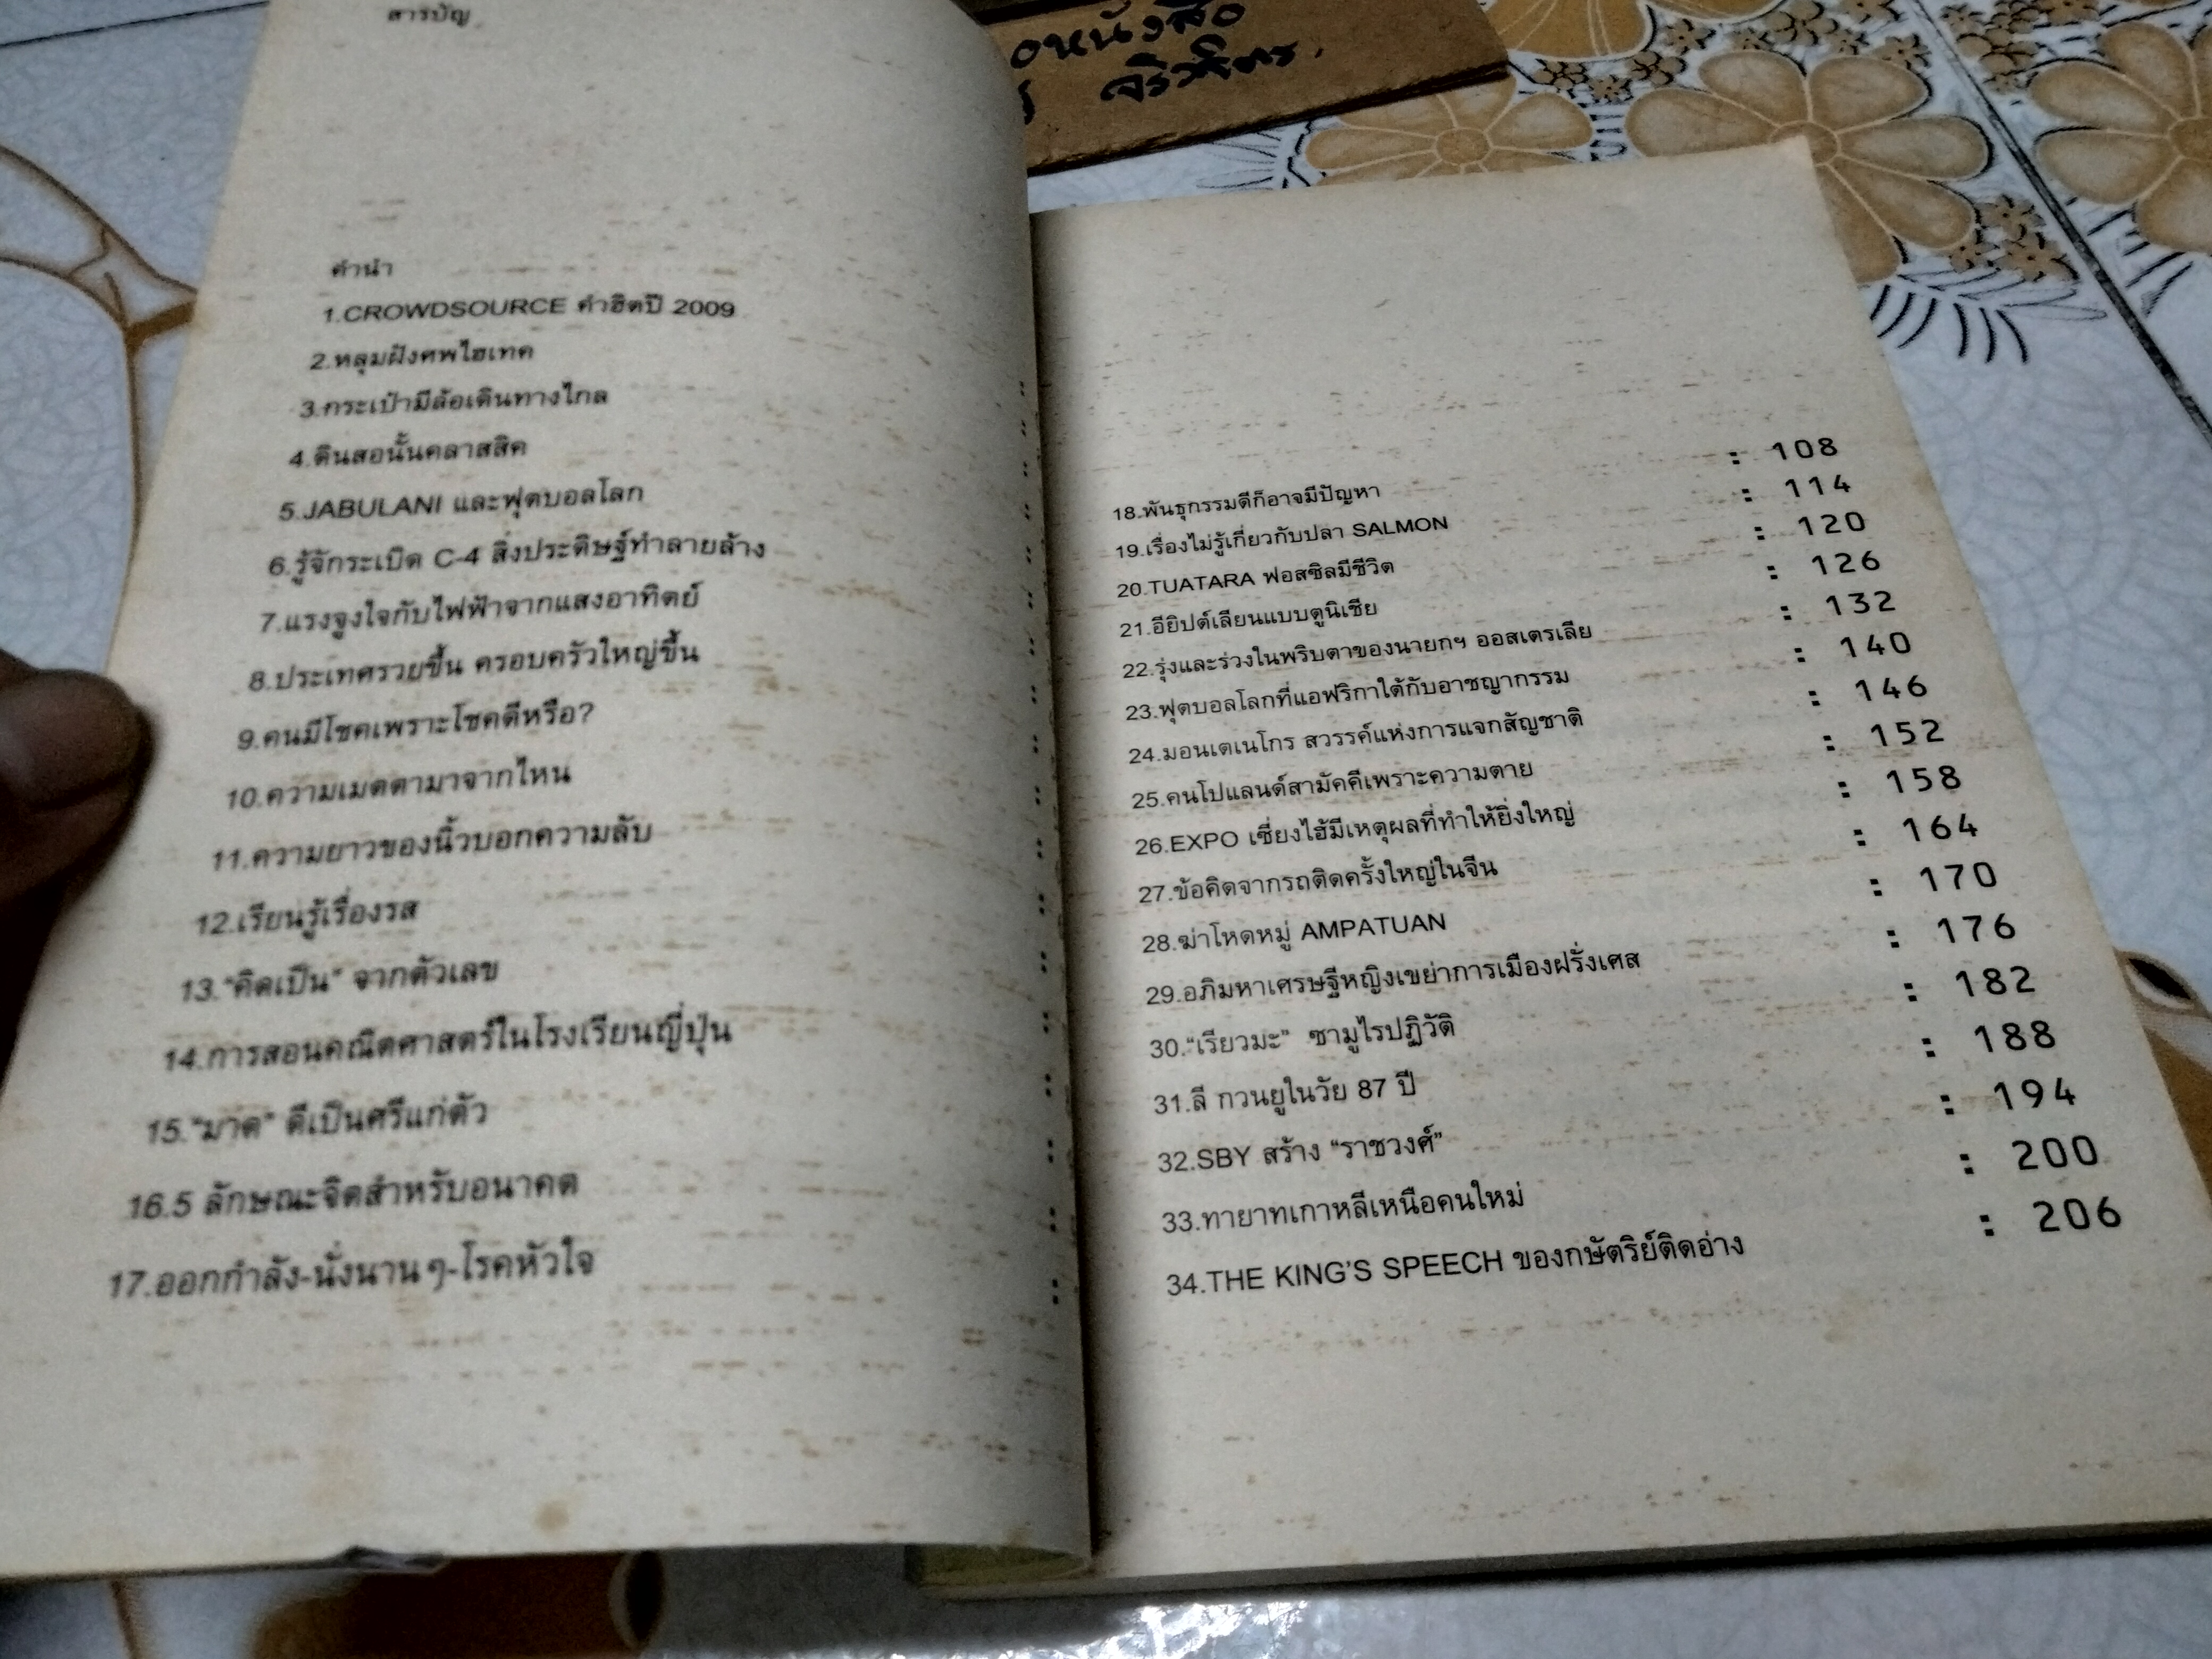 สารบัญ
คำนำ
1.CROWDSOURCE คำฮิตปี 2009
2.หลุมฝังศพไฮเทค
3.กระเป๋ามีล้อเดินทางไกล
4.ดินสอนั้นคลาสสิค
5.JABULANI และฟุตบอลโลก
6.รู้จักระเบิด C-4 สิ่งประดิษฐ์ทำลายล้าง
7.แรงจูงใจกับไฟฟ้าจากแสงอาทิตย์
8.ประเทศรวยขึ้น ครอบครัวใหญ่ขึ้น
9.คนมีโชคเพราะโชคดีหรือ?
10.ความเมตตามาจากไหน
11.ความยาวของนิ้วบอกความลับ
12.เรียนรู้เรื่องรส
13."คิดเป็น" จากตัวเลข
14.การสอนคณิตศาสตร์ในโรงเรียนญี่ปุ่น
15."มาด" ดีเป็นศรีแก่ตัว
16.5 ลักษณะจิตสำหรับอนาคต
17.ออกกำลัง-นั่งนานๆ-โรคหัวใจ
18.พันธุกรรมดีก็อาจมีปัญหา : 108
19.เรื่องไม่รู้เกี่ยวกับปลา SALMON : 114
20.TUATARA ฟอสซิลมีชีวิต : 120
21.อียิปต์เลียนแบบตูนิเซีย : 126
22.รุ่งและร่วงในพริบตาของนายกฯ ออสเตรเลีย : 132
23.ฟุตบอลโลกที่แอฟริกาใต้กับอาชญากรรม : 140
24.มอนเตเนโกร สวรรค์แห่งการแจกสัญชาติ : 146
25.คนโปแลนด์สามัคคีเพราะความตาย : 152
26.EXPO เซี่ยงไฮ้มีเหตุผลที่ทำให้ยิ่งใหญ่ : 158
27.ข้อคิดจากรถติดครั้งใหญ่ในจีน : 164
28.ฆ่าโหดหมู่ AMPATUAN : 170
29.อภิมหาเศรษฐีหญิงเขย่าการเมืองฝรั่งเศส : 176
30."เรียวมะ" ซามูไรปฏิวัติ : 182
31.ลี กวนยูในวัย 87 ปี : 188
32.SBY สร้าง "ราชวงศ์" : 194
33.ทายาทเกาหลีเหนือคนใหม่ : 200
34.THE KING'S SPEECH ของกษัตริย์ติดอ่าง : 206